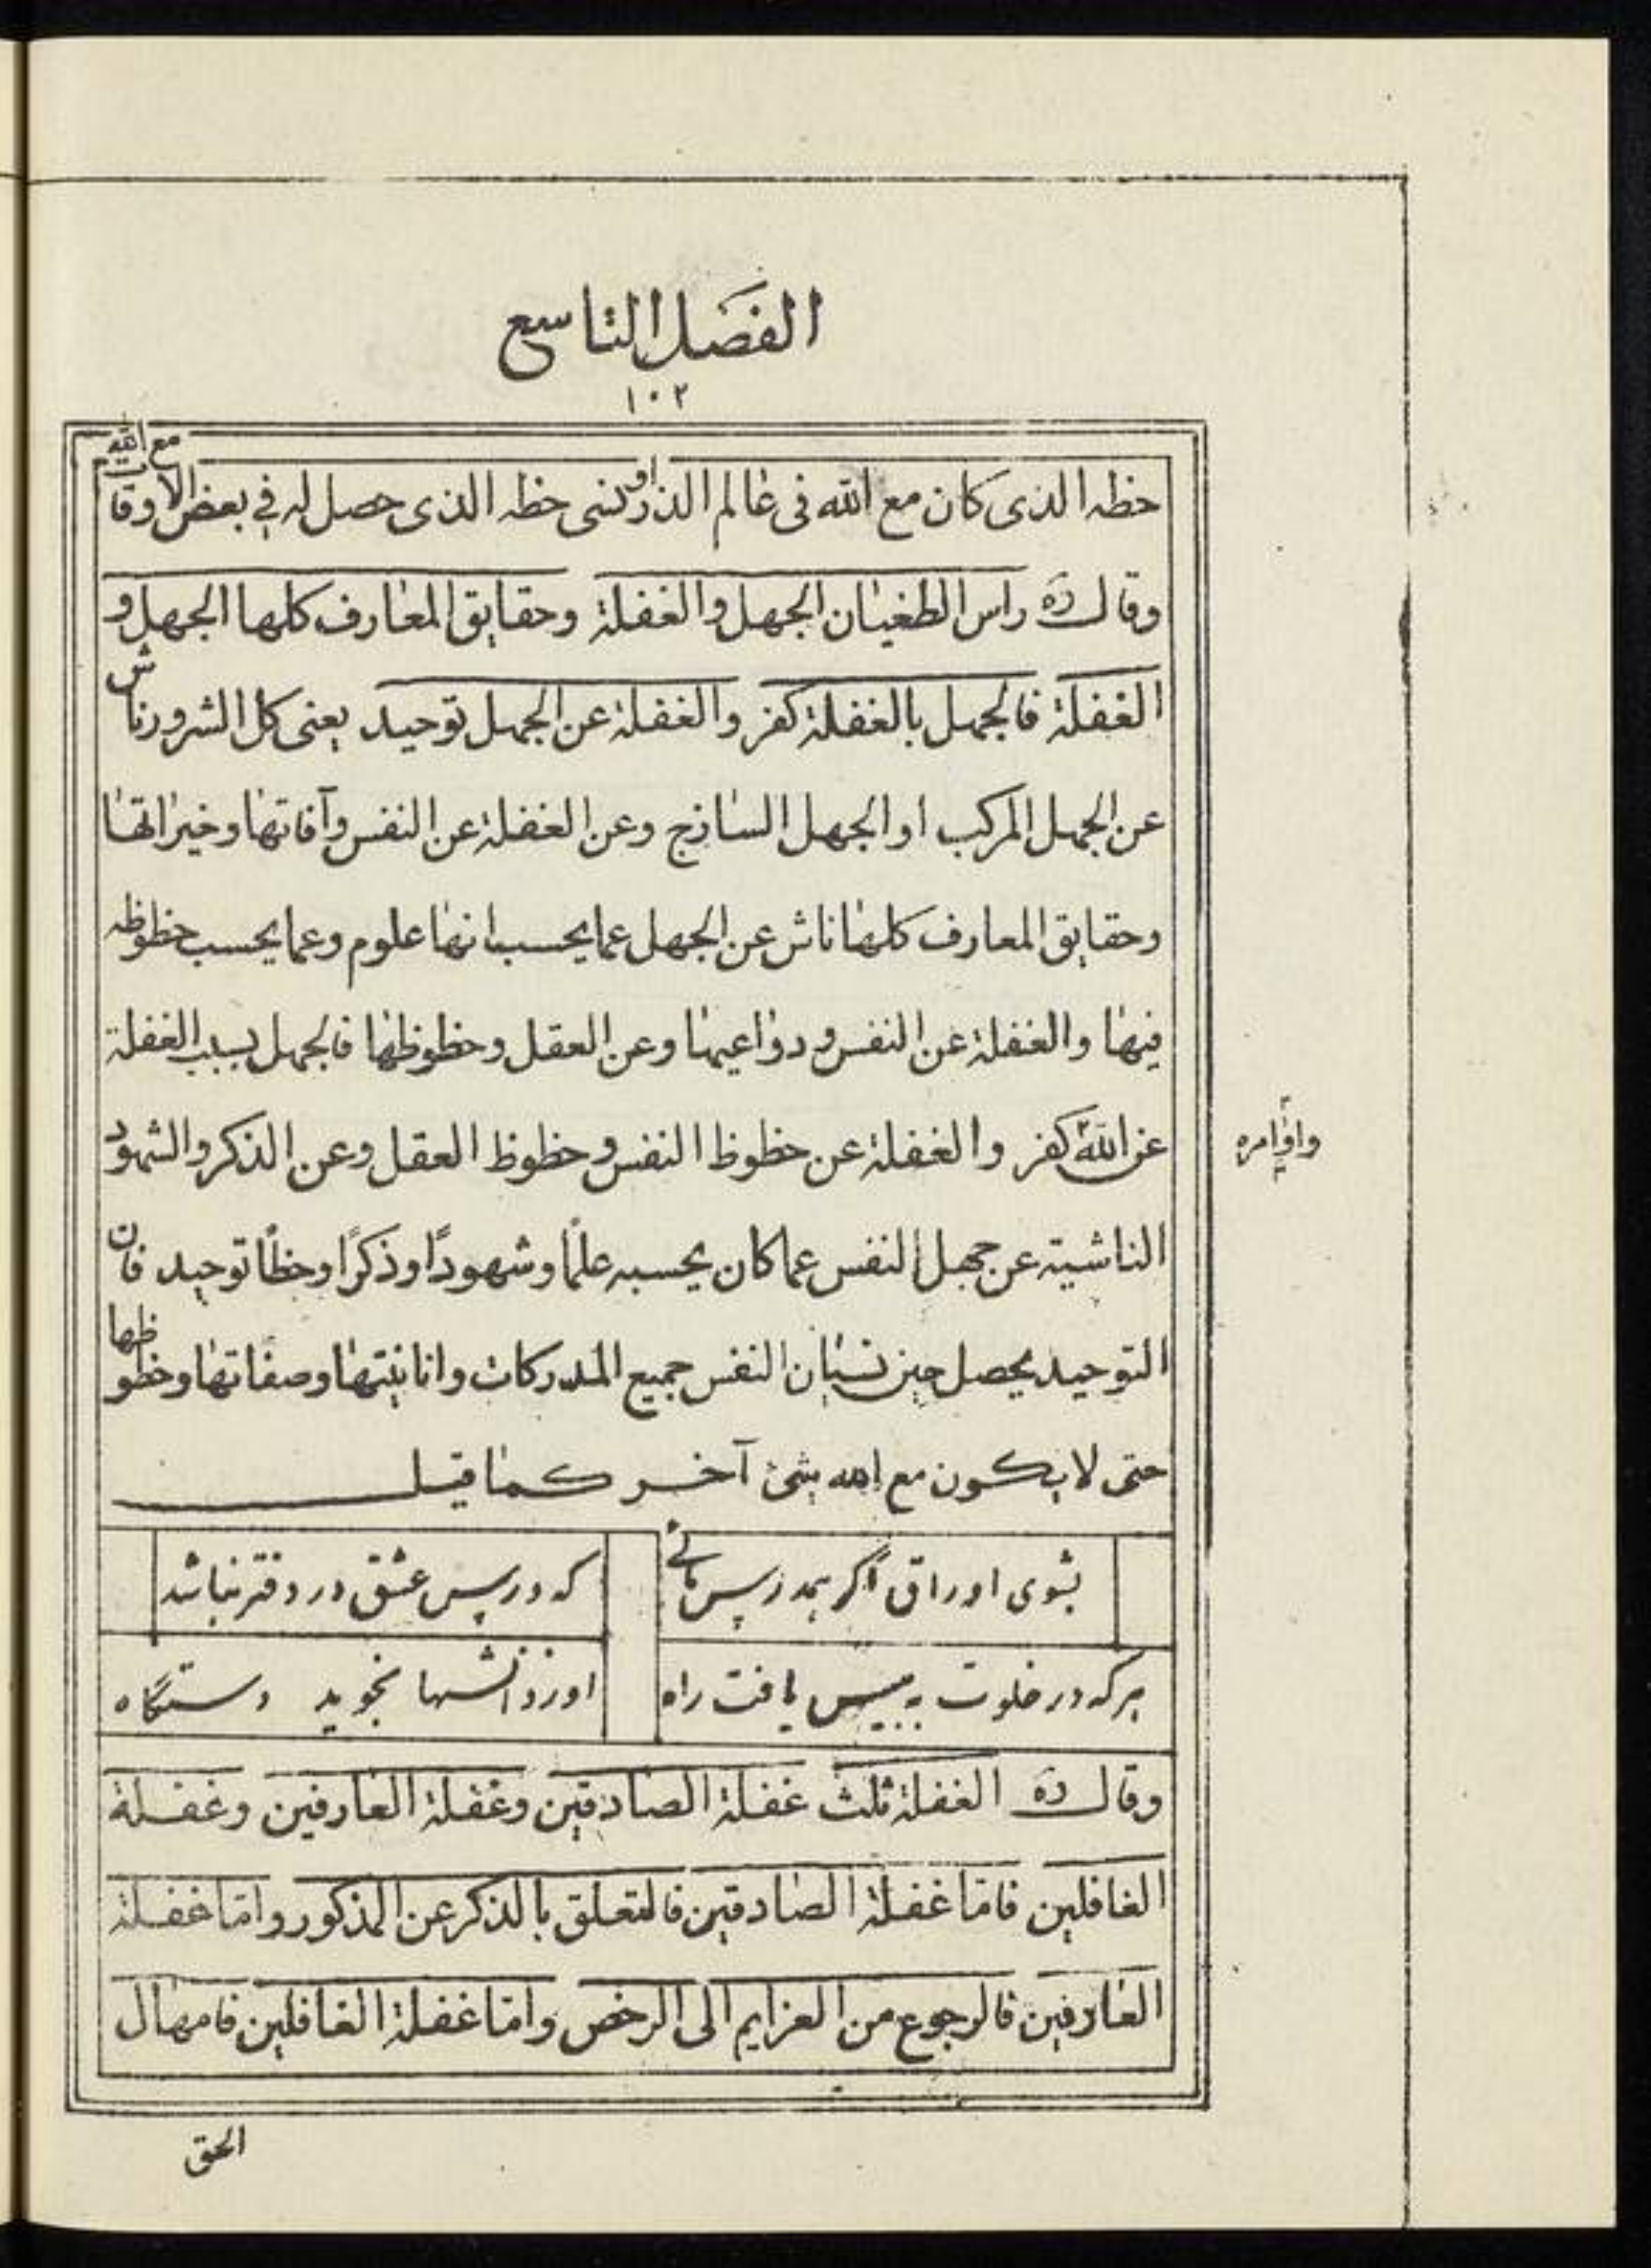 الفصل التاسع
١٠٢
حظه الذى كان مع الله فى عالم الذر او نسى حظه الذى حصل له فى بعض الاوقات مع الله
وقال ره راس الطغيان الجهل والغفلة وحقايق المعارف كلها الجهل و
الغفلة فالجهل بالغفلة كفر والغفلة عن الجهل توحيد يعنى كل الشرور ناش
عن الجهل المركب او الجهل الساذج وعن الغفلة عن النفس وآفاتها وخيراتها
وحقايق المعارف كلها ناش عن الجهل عما يحسب انها علوم وعما يحسب حظوظه
فيها والغفلة عن النفس ودواعيها وعن العقل وحظوظها فالجهل بسبب الغفلة
عن الله كفر والغفلة عن حظوظ النفس وحظوظ العقل وعن الذكر والشهود
واوامره
الناشية عن جهل النفس عما كان يحسبه علمًا وشهودًا وذكرًا وحظًا توحيد فان
التوحيد يحصل حين نسيان النفس جميع المدركات وانانيتها وصفاتها وحظوظها
حتى لا يكون مع الله شئ آخر كما قيل
بشوى اوراق اگر همدرس مائى که درس عشق در دفتر نباشد
هرکه در خلوت به بينش يافت راه او ز دانشها نجويد دستگاه
وقال ره الغفلة ثلث غفلة الصادقين وغفلة العارفين وغفلة
الغافلين فاما غفلة الصادقين فالتعلق بالذكر عن المذكور واما غفلة
العارفين فالرجوع من العزايم الى الرخص واما غفلة الغافلين فامهال
الحق